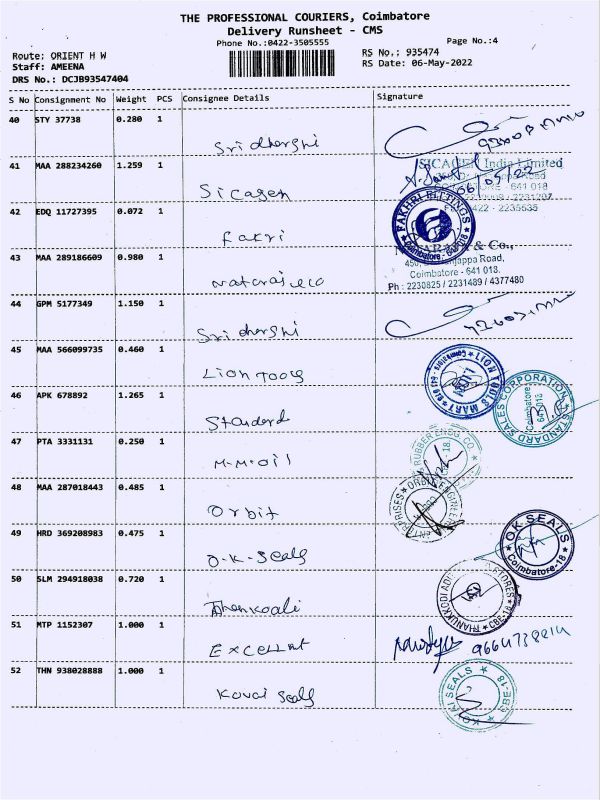 THE PROFESSIONAL COURIERS, Coimbatore
Delivery Runsheet - CMS
Phone No.:0422-3505555 Page No.:4
Route: ORIENT H W RS No.: 935474
Staff: AMEENA RS Date: 06-May-2022
DRS No.: DCJB93547404
S No Consignment No Weight PCS Consignee Details Signature
40 STY 37738 0.280 1
Sridharshi
41 MAA 288234260 1.259 1
SICAGEN India Limited
641 018
06/05/22
Sicagen
0422 - 2235535
42 EDQ 11727395 0.072 1
FAKHRI FITTINGS
Coimbatore - 641 018
Fakri
43 MAA 289186609 0.980 1
& Co.,
Road,
Coimbatore - 641 018.
Ph : 2230825 / 2231489 / 4377480
Nataraj & co
44 GPM 5177349 1.150 1
Sridharshi
45 MAA 566099735 0.460 1
LION TOOLS MART
Coimbatore - 641 018
Lion Tools
46 APK 678892 1.265 1
STANDARD SALES CORPORATION
Coimbatore
641 018
Standard
47 PTA 3331131 0.250 1
RUBBER ENGG. CO.
18
M.M.oil
48 MAA 287018443 0.485 1
ORBIT ENGINEERING ENTERPRISES
Orbit
49 HRD 369208983 0.475 1
OK SEALS
Coimbatore-18
O.K. Seals
50 SLM 294918038 0.720 1
STORES
CBE-18
51 MTP 1152307 1.000 1
9664738814
Excellent
52 THN 938028888 1.000 1
KOVAI SEALS
CBE-18
Kovai Seals